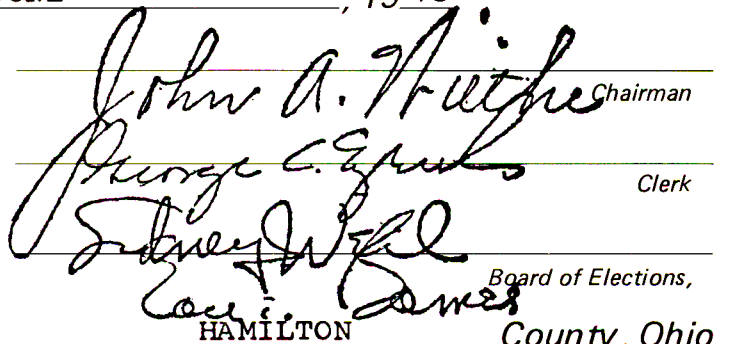 , 19
John A. Wiethe
Chairman
George C. Eyrich
Clerk
Sidney Weil
Board of Elections,
HAMILTON County, Ohio